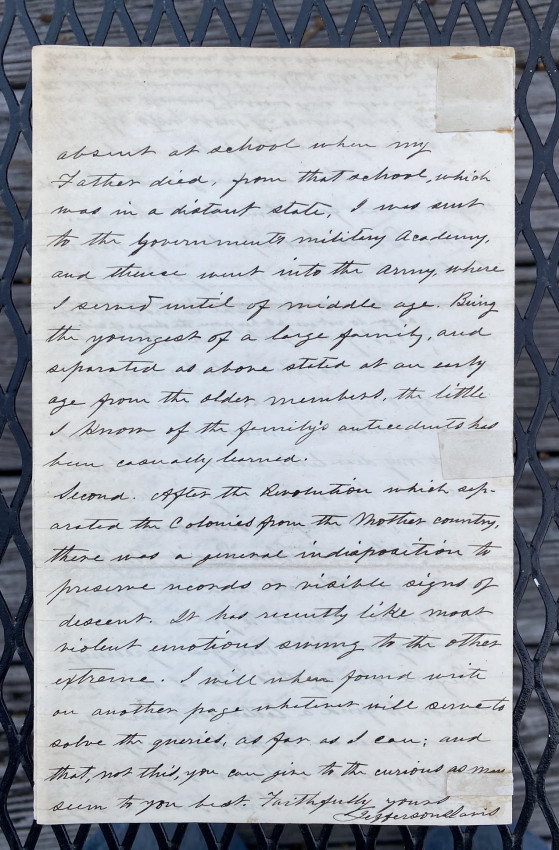 absent at school when my
Father died, from that school, which
was in a distant state, I was sent
to the Governments military Academy,
and thence went into the Army, where
I served until of middle age. Being
the youngest of a large family, and
separated as above stated at an early
age from the older members, the little
I know of the family's antecedents has
been casually learned.
Second. After the Revolution which sep-
arated the Colonies from the Mother country,
there was a general indisposition to
preserve records or visible signs of
descent. It has recently like most
violent emotions swung to the other
extreme. I will when found write
on another page whatever will serve to
solve the queries, as far as I can; and
that, not this, you can give to the curious as may
seem to you best. Faithfully yours
Jefferson Davis